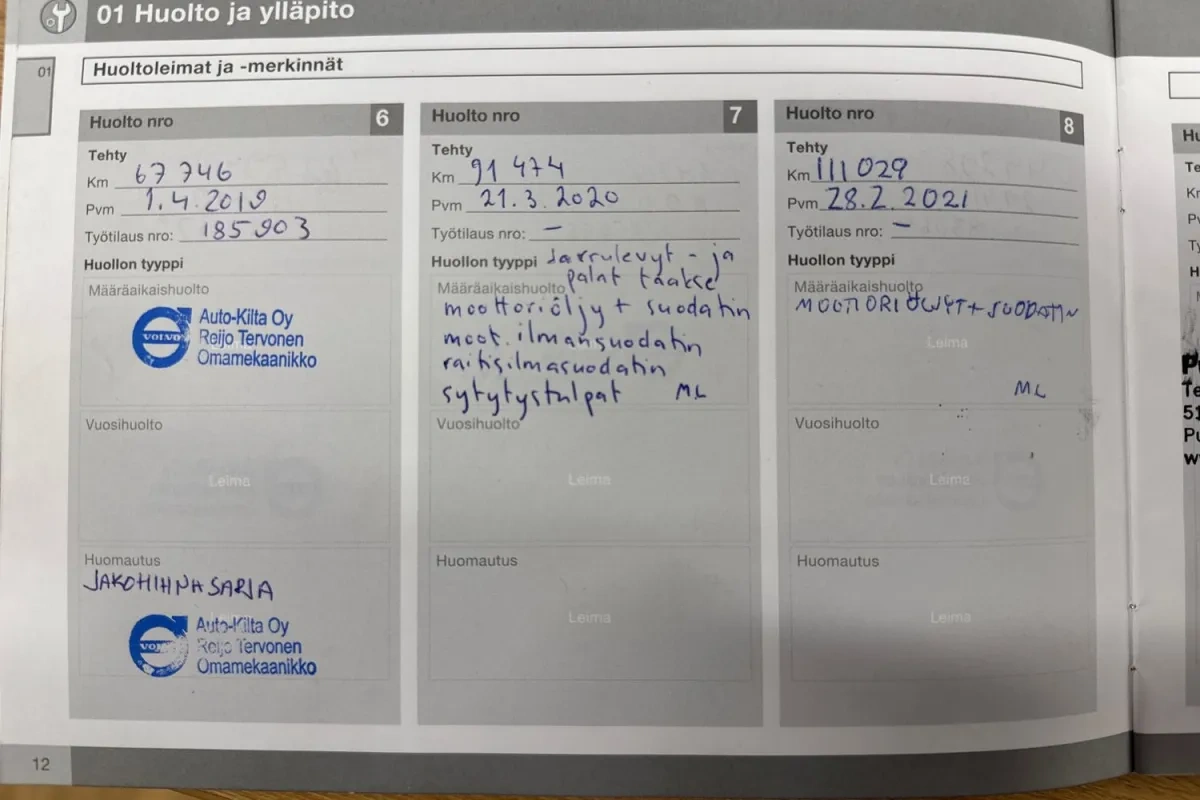 01 Huolto ja ylläpito
01
Huoltoleimat ja -merkinnät
Huolto nro 6
Tehty
Km 67 746
Pvm 1.4.2019
Työtilaus nro: 185903
Huollon tyyppi
Määräaikaishuolto
VOLVO
Auto-Kilta Oy
Reijo Tervonen
Omamekaanikko
Vuosihuolto
Leima
Huomautus
JAKOHIHNASARJA
Leima
VOLVO
Auto-Kilta Oy
Reijo Tervonen
Omamekaanikko
Huolto nro 7
Tehty
Km 91 474
Pvm 21.3.2020
Työtilaus nro: –
Huollon tyyppi Jarrulevyt - ja
palat taakse
Määräaikaishuolto
moottoriöljy + suodatin
moot. ilmansuodatin
raitisilmasuodatin
sytytystulpat ML
Vuosihuolto
Leima
Huomautus
Leima
Huolto nro 8
Tehty
Km 111 029
Pvm 28.2.2021
Työtilaus nro: –
Huollon tyyppi
Määräaikaishuolto
MOOTTORIÖLJYT + SUODATIN
Leima
ML
Vuosihuolto
Leima
Huomautus
Leima
12